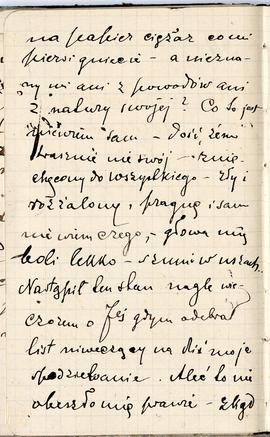 na papier ciężar co mi
piersi gniecie – a niezna-
ny mi ani z powodów ani
z natury swojej? Co to jest
nie wiem sam – dość, żem
strasznie nie swój – znie-
chęcony do wszystkiego – zły i
rozżalony, pragnę i sam
nie wiem czego, – głowa mię
boli lekko – szumi w uszach.
Nastąpił ten stan nagle wie-
czorem o 7ej gdym odebrał
list niweczący na dziś moje
spodziewanie. Ależ to nie
obeszło mię prawie –